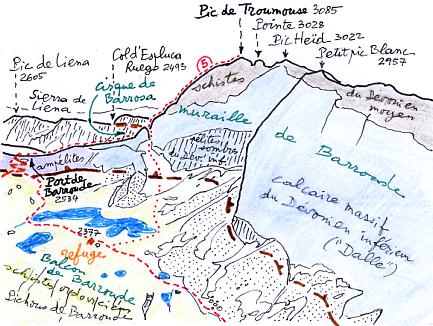 Pic de Troumouse 3085
Pointe 3028
Pic Heïd 3022
Petit pic Blanc
2957
Pic de Liena
2605
Col d'Espluca
Ruego 2493
5
Sierra de
Liena
cirque de
Barrosa
schistes
du Dévonien
moyen
muraille
de
Barroude
pélites
sombres
du Dév. inf.
ampélites
Port de
Barroude
2534
calcaire massif
du Dévonien inférieur
("Dalle")
2377
refuge
Balcon de
Barroude
schistes ordoviciens
Pichous de Barroude